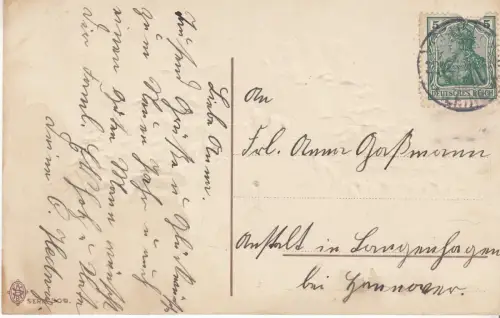 Liebe Anna.
Tausend Grüße u. Glückwünsche
zum Neuen Jahr u. auch
einen guten Mann wünscht
Dir
Deine C. Hedwig
An
Frl. Anna Gaßmann
Anstalt in Langenhagen
bei Hannover.
5 5
DEUTSCHES REICH
SERIE 209.